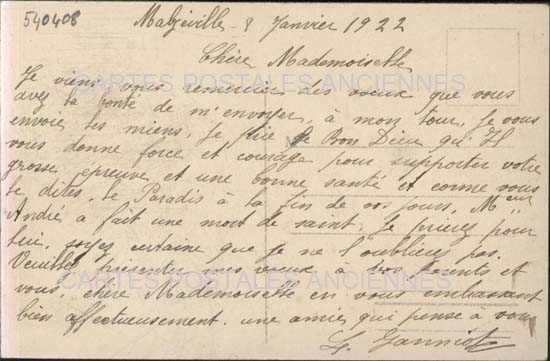 540408
Malzéville - 8 Janvier 1922
Chère Mademoiselle
Je viens vous remercier des vœux que vous
avez la bonté de m'envoyer, à mon tour, je vous
envoie les miens, je prie le Bon Dieu qu'Il
vous donne force et courage pour supporter votre
grosse épreuve et une bonne santé et comme vous
le dites, le Paradis à la fin de vos jours, Mr
André a fait une mort de saint, je prierez pour
lui, soyez certaine que je ne l'oublierez pas.
Veuillez présenter mes vœux à vos parents et
vous, chère Mademoiselle en vous embrassant
bien affectueusement. une amie qui pense à vous
CARTES POSTALES ANCIENNES
CARTES POSTALES ANCIENNES